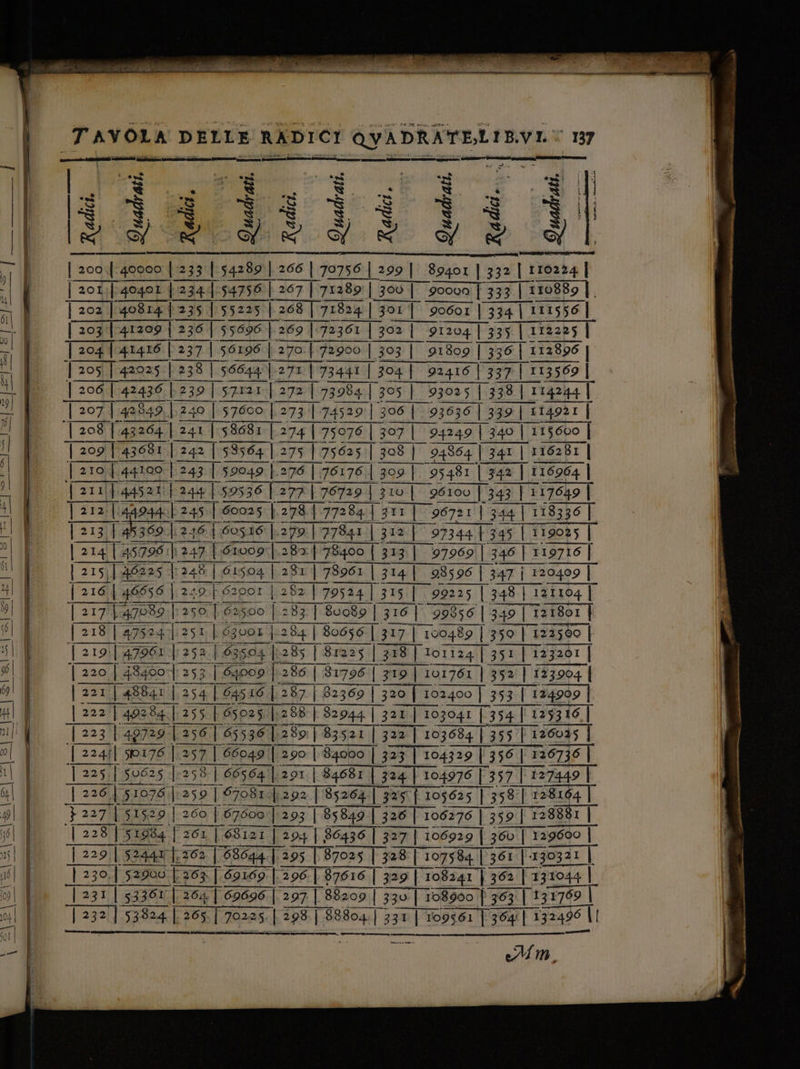 TAVOLA DELLE RADICI QVADRATE, LIB. VI. 137
Radici. Quadrati. Radici. Quadrati. Radici. Quadrati. Radici. Quadrati. Radici. Quadrati.
| 200 | 40000 | 233 | 54289 | 266 | 70756 | 299 | 89401 | 332 | 110224 |
| 201 | 40401 | 234 | 54756 | 267 | 71289 | 300 | 90000 | 333 | 110889 |
| 202 | 40814 | 235 | 55225 | 268 | 71824 | 301 | 90601 | 334 | 111556 |
| 203 | 41209 | 236 | 55696 | 269 | 72361 | 302 | 91204 | 335 | 112225 |
| 204 | 41416 | 237 | 56196 | 270 | 72900 | 303 | 91809 | 336 | 112896 |
| 205 | 42025 | 238 | 56644 | 271 | 73441 | 304 | 92416 | 337 | 113569 |
| 206 | 42436 | 239 | 57121 | 272 | 73984 | 305 | 93025 | 338 | 114244 |
| 207 | 42849 | 240 | 57600 | 273 | 74529 | 306 | 93636 | 339 | 114921 |
| 208 | 43264 | 241 | 58681 | 274 | 75076 | 307 | 94249 | 340 | 115600 |
| 209 | 43681 | 242 | 58564 | 275 | 75625 | 308 | 94864 | 341 | 116281 |
| 210 | 44100 | 243 | 59049 | 276 | 76176 | 309 | 95481 | 342 | 116964 |
| 211 | 44521 | 244 | 59536 | 277 | 76729 | 310 | 96100 | 343 | 117649 |
| 212 | 44944 | 245 | 60025 | 278 | 77284 | 311 | 96721 | 344 | 118336 |
| 213 | 45369 | 246 | 60516 | 279 | 77841 | 312 | 97344 | 345 | 119025 |
| 214 | 45796 | 247 | 61009 | 280 | 78400 | 313 | 97969 | 346 | 119716 |
| 215 | 46225 | 248 | 61504 | 281 | 78961 | 314 | 98596 | 347 | 120409 |
| 216 | 46656 | 249 | 62001 | 282 | 79524 | 315 | 99225 | 348 | 121104 |
| 217 | 47089 | 250 | 62500 | 283 | 80089 | 316 | 99856 | 349 | 121801 |
| 218 | 47524 | 251 | 63001 | 284 | 80656 | 317 | 100489 | 350 | 122500 |
| 219 | 47961 | 252 | 63504 | 285 | 81225 | 318 | 101124 | 351 | 123201 |
| 220 | 48400 | 253 | 64009 | 286 | 81796 | 319 | 101761 | 352 | 123904 |
| 221 | 48841 | 254 | 64516 | 287 | 82369 | 320 | 102400 | 353 | 124909 |
| 222 | 49284 | 255 | 65025 | 288 | 82944 | 321 | 103041 | 354 | 125316 |
| 223 | 49729 | 256 | 65536 | 289 | 83521 | 322 | 103684 | 355 | 126025 |
| 224 | 50176 | 257 | 66049 | 290 | 84000 | 323 | 104329 | 356 | 126736 |
| 225 | 50625 | 258 | 66564 | 291 | 84681 | 324 | 104976 | 357 | 127449 |
| 226 | 51076 | 259 | 67081 | 292 | 85264 | 325 | 105625 | 358 | 128164 |
| 227 | 51529 | 260 | 67600 | 293 | 85849 | 326 | 106276 | 359 | 128881 |
| 228 | 51984 | 261 | 68121 | 294 | 86436 | 327 | 106929 | 360 | 129600 |
| 229 | 52441 | 262 | 68644 | 295 | 87025 | 328 | 107584 | 361 | 130321 |
| 230 | 52900 | 263 | 69169 | 296 | 87616 | 329 | 108241 | 362 | 131044 |
| 231 | 53361 | 264 | 69696 | 297 | 88209 | 330 | 108900 | 363 | 131769 |
| 232 | 53824 | 265 | 70225 | 298 | 88804 | 331 | 109561 | 364 | 132496 |
Mm